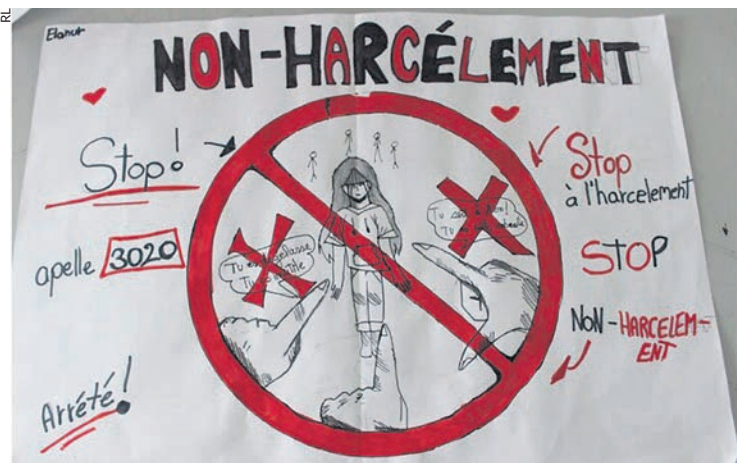 RL
Elanur
NON-HARCÉLEMENT
Stop!
apelle 3020
Arrété!
Tu
Tu
Tu
Tu
Stop
à l'harcelement
STOP
NON-HARCELEM-
ENT